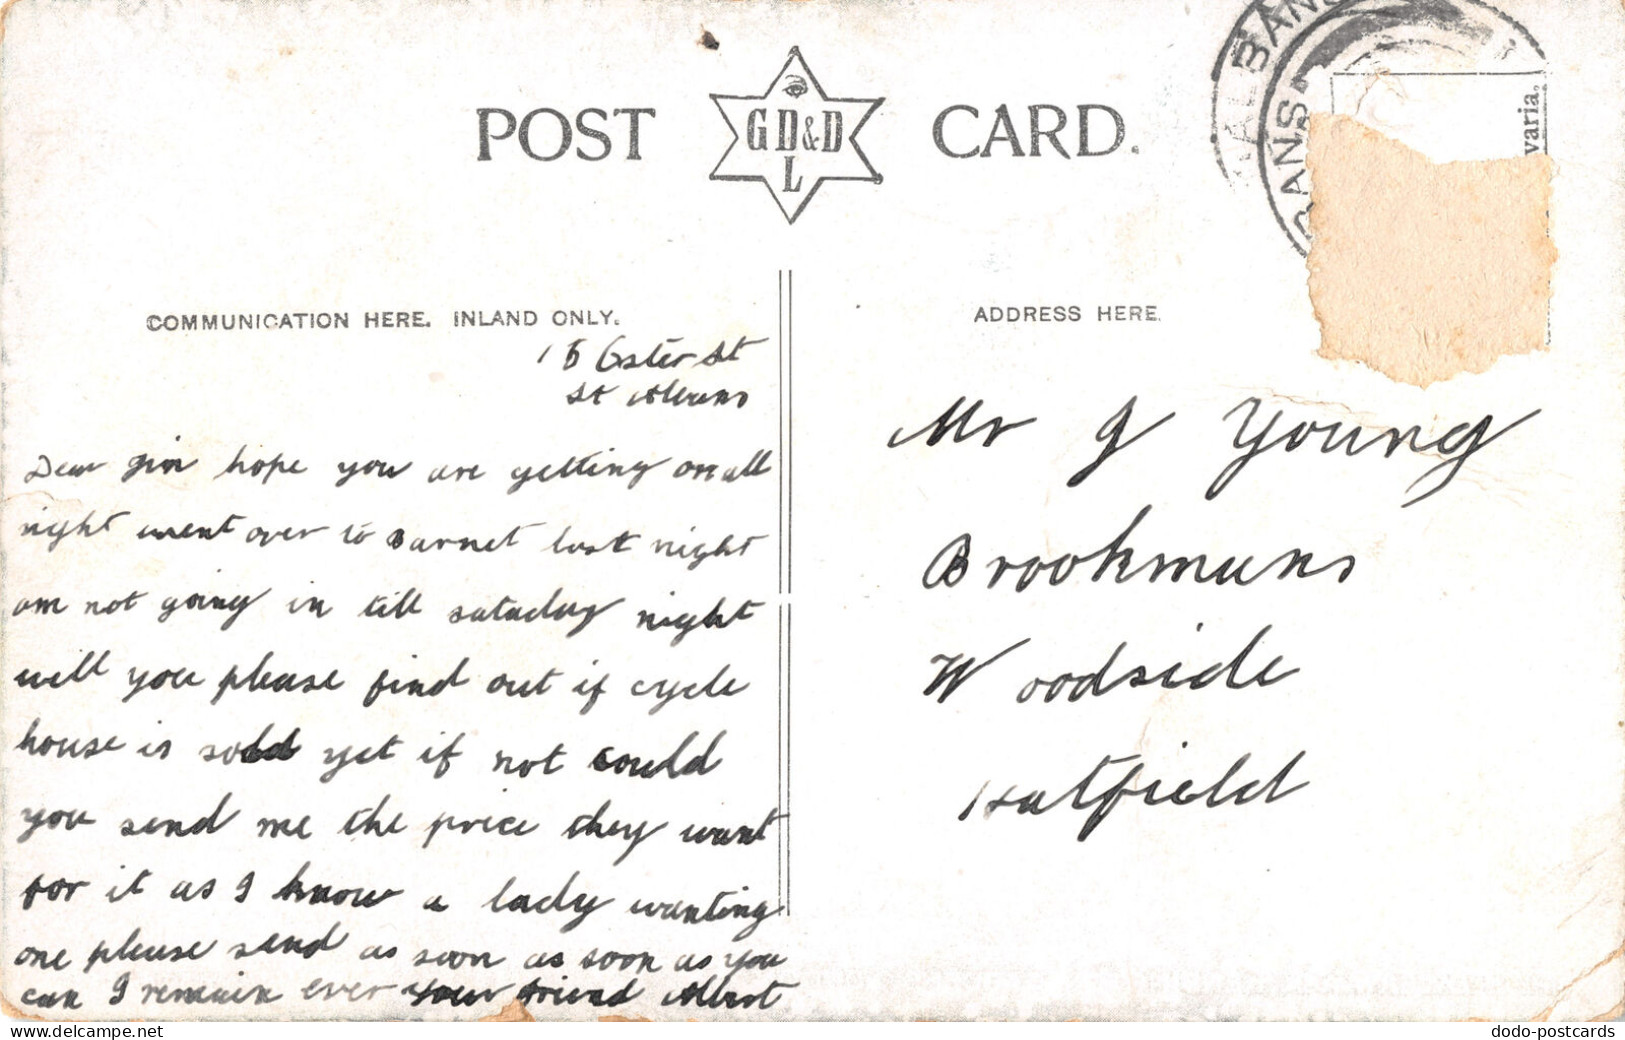 POST CARD.
GD&D
L
ALBANS
BANS
varia.
COMMUNICATION HERE. INLAND ONLY.
ADDRESS HERE.
15 Oster St
St Albans
Dear hope you are getting on all
right went over to Barnet last night
am not going in till sataday night
will you please find out if cycle
house is sold yet if not could
you send me the price they want
for it as I know a lady wanting
one please send as soon as soon as you
can I remain ever your friend Albert
Mr J Young
Brookmans
Woodside
Hatfield
dodo-postcards